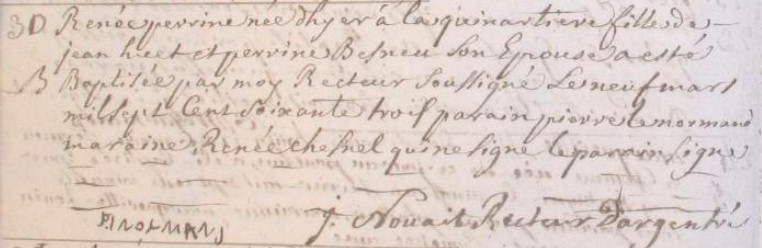 30 Renée perrine née dhyer à la quinartiere fille de
jean huet et perrine Besneu Son Epouse a esté
B Baptisée par moy Recteur Soussigné Le neuf mars
mil sept Cent Soixante trois parain pierre le normand
maraine Renée chesnel qui ne signe le parain signe
P. NORMAND J. Nouail Recteur Dargentré